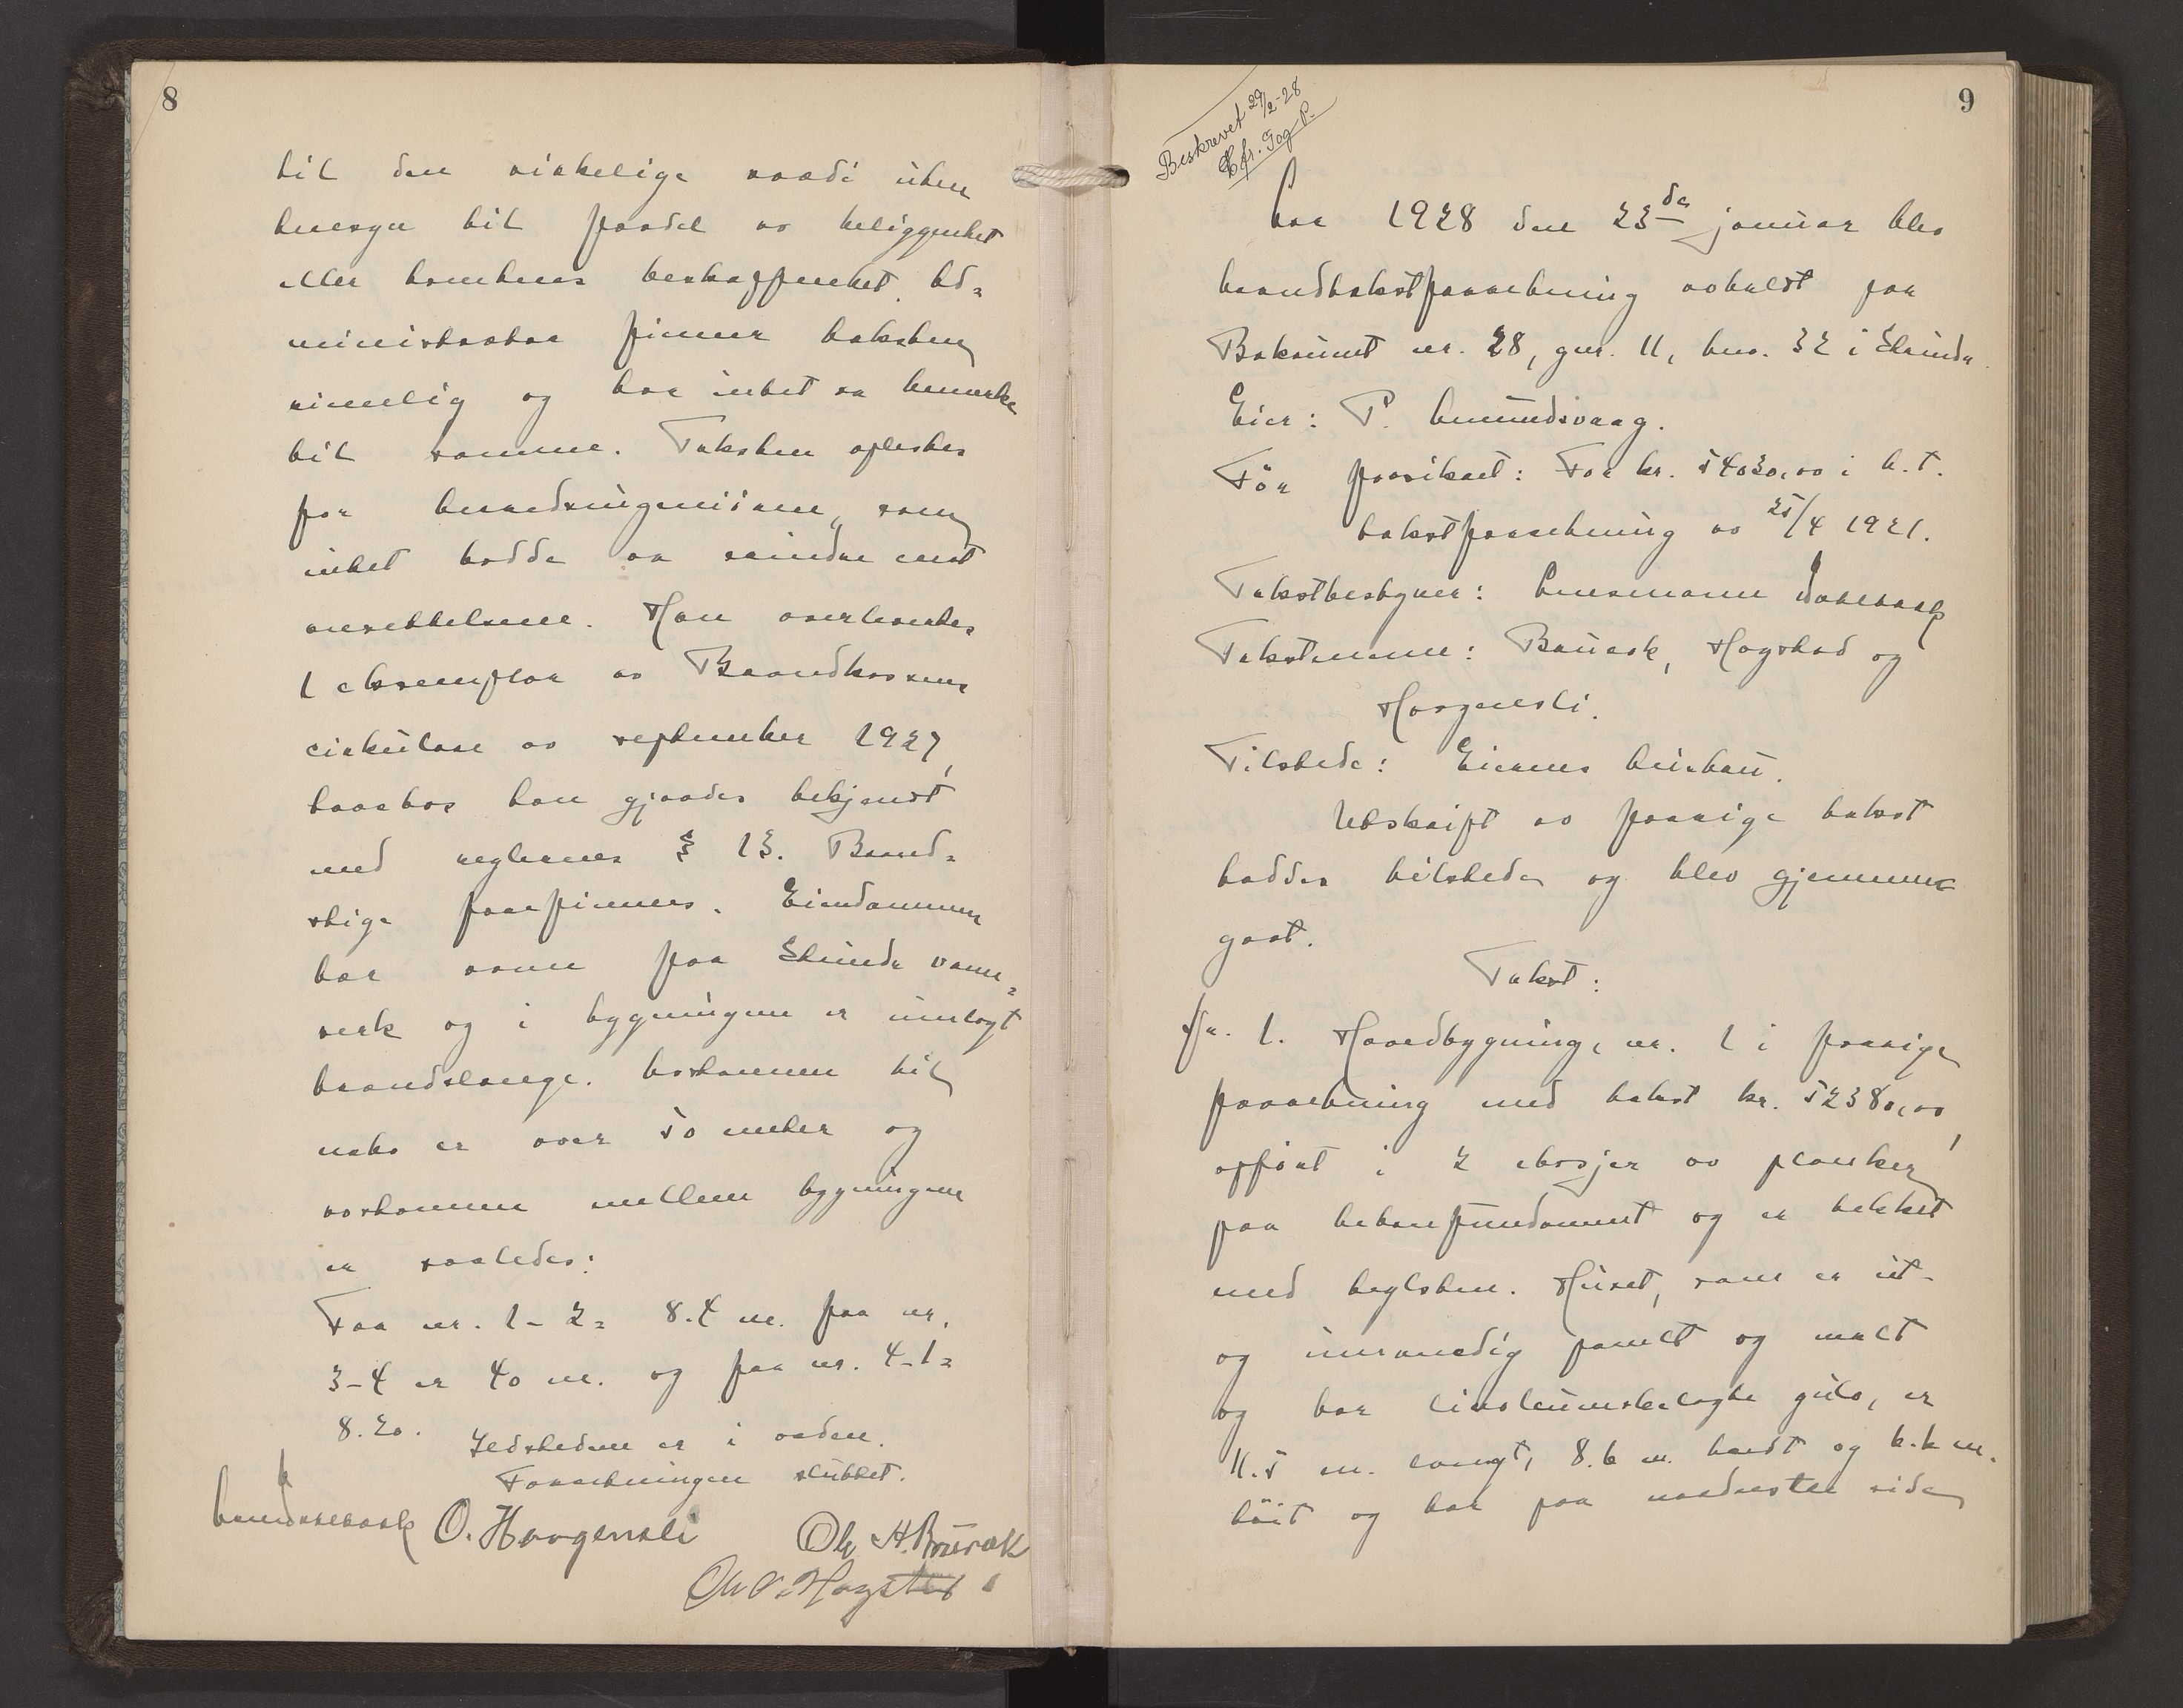 8
til den virkelige værdi uten
hensyn til fordel av beliggenhet
eller tomtens beskaffenhet. Ad=
ministrator finner taksten
rimelig og har intet at bemerke
til samme. Taksten oplestes
for herredsingeniøren, som
intet hadde at erindre mot
ansettelsene. Han overleverte
1 eksemplar av Brandkassens
cirkulære av september 1927,
hvorhos han gjordes bekjendt
med reglenes § 13. Brand=
stige forefinnes. Eiendommen
har vann fra Strinda vann=
verk og i bygningen er innlagt
brandslange. Avstannen til
nabo er over 50 meter og
avstannen mellem bygningene
er saaledes:
Fra nr. 1-2= 8.4 m. fra nr.
3-4 er 40 m. og fra nr. 4-1=
8.20. Ildstedene er i orden.
Forretningen sluttet.
O. Horgensli
Ole H. Brurok
Ole O. Hogstad
9
Beskrevet 29/2-28
Aar 1928 den 23de januar blev
brandtakstforretning avholdt paa
Bakaunet nr. 28, gnr. 11, bnr. 32 i Strinda.
Eier: P. Amundsvaag.
Før forsikret: For kr. 54030,00 i h.t.
takstforretning av 25/4 1921.
Takstbestyrer: Lensmann
Takstmenn: Brurok, Hogstad og
Horgensli.
Tilstede: Eierens hustru.
Utskrift av forrige takst
haddes tilstede og blev gjennem=
gaat.
Takst:
Nr. 1. Hovedbygning, nr. 1 i forrige
forretning med takst kr. 52380,00,
opført i 2 etasjer av planker
paa betonfundament og er tekket
med teglsten. Huset, som er ut-
og innvendig panelt og malt
og har linoleumsbelagte gulv, er
11.5 m. langt, 8.6 m. bredt og 6.6 m.
høit og har paa nordvestre side